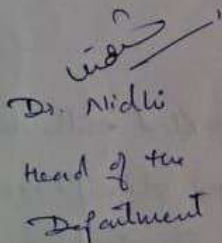 Dr. Nidhi
Head of the
Department